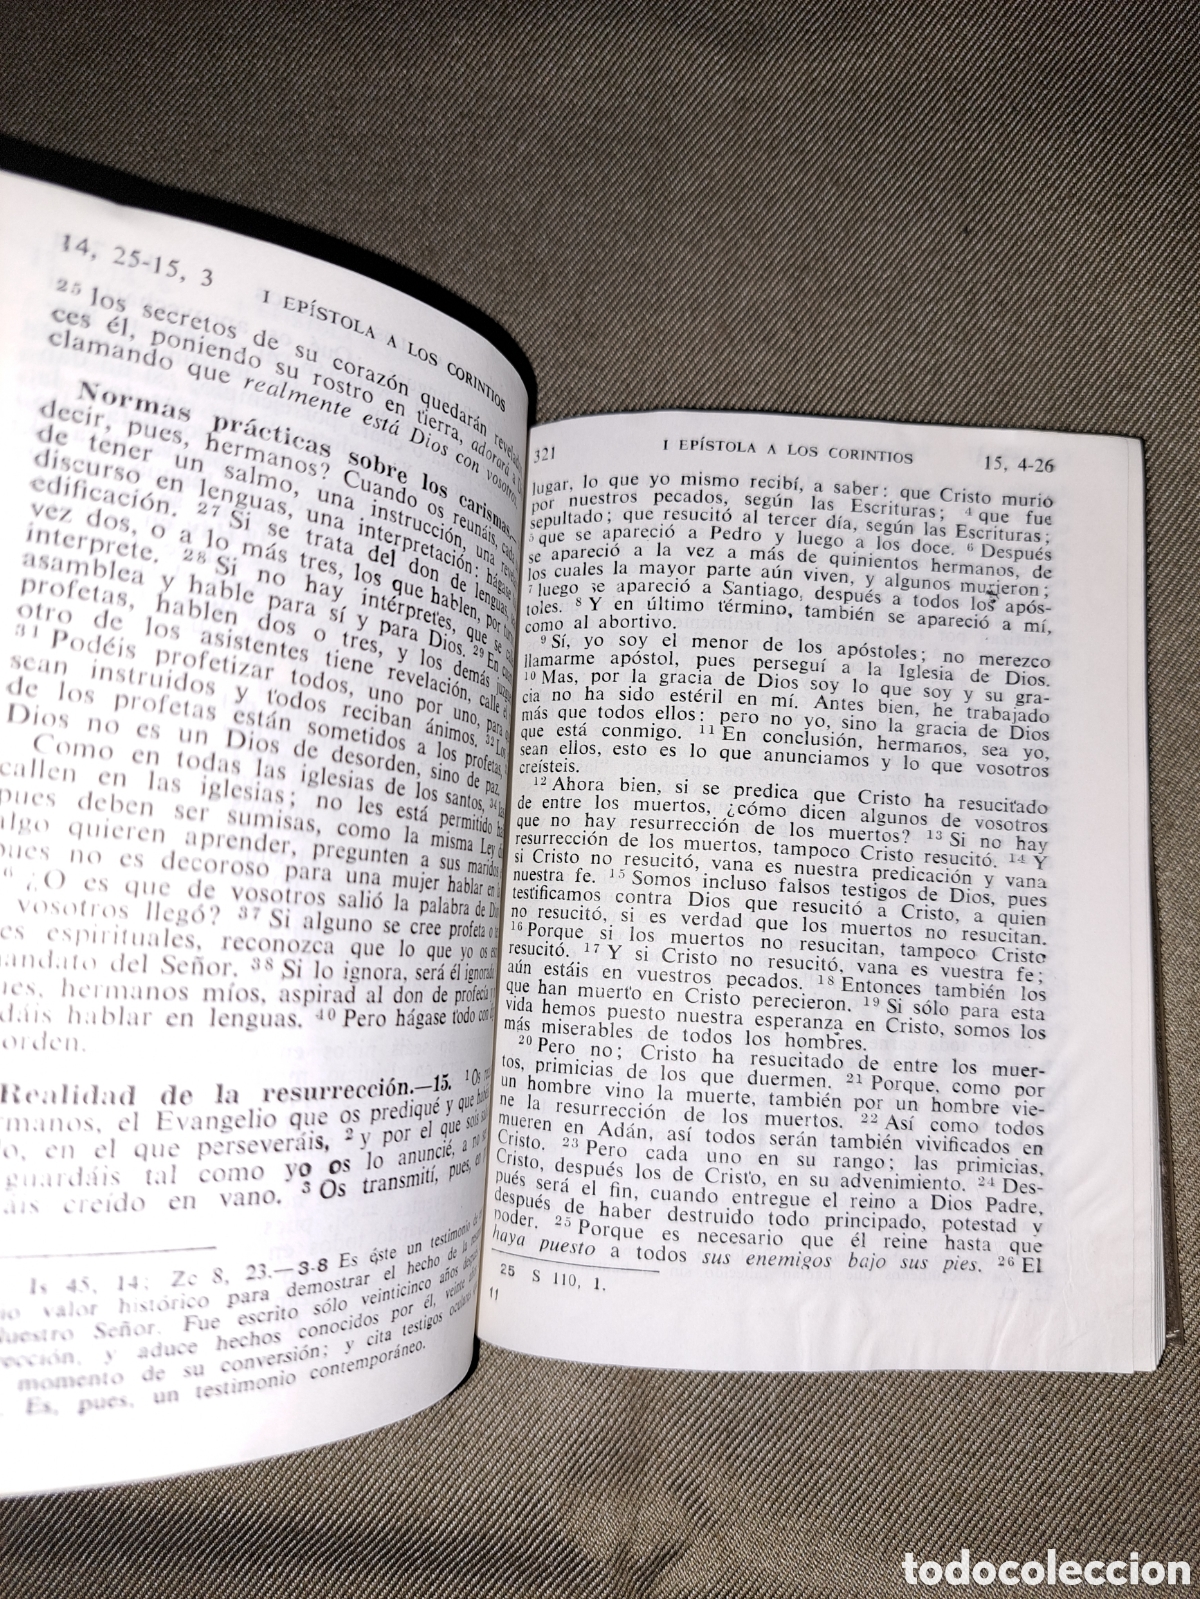 14, 25-15, 3
I EPÍSTOLA A LOS CORINTIOS
25 los secretos de su corazón quedarán
ces él, poniendo su rostro en tierra, adorará a
clamando que realmente está Dios con
Normas prácticas sobre los carismas.—
decir, pues, hermanos? Cuando os reunáis,
de tener un salmo, una instrucción, una
discurso en lenguas, una interpretación;
edificación. 27 Si se trata del don de lenguas,
vez dos, o a lo más tres, los que hablen, por
interprete. 28 Si no hay intérpretes, que se
asamblea y hable para sí y para Dios. 29 En
profetas, hablen dos o tres, y los demás
otro de los asistentes tiene revelación, calle
31 Podéis profetizar todos, uno por uno, para
sean instruidos y todos reciban ánimos. 32
de los profetas están sometidos a los profetas,
Dios no es un Dios de desorden, sino de paz.
Como en todas las iglesias de los santos, 34
callen en las iglesias; no les está permitido
pues deben ser sumisas, como la misma Ley
algo quieren aprender, pregunten a sus maridos
pues no es decoroso para una mujer hablar en
¿O es que de vosotros salió la palabra de
vosotros llegó? 37 Si alguno se cree profeta o
es espirituales, reconozca que lo que yo os
andato del Señor. 38 Si lo ignora, será él
ues, hermanos míos, aspirad al don de profecía y
dáis hablar en lenguas. 40 Pero hágase todo con
orden.
Realidad de la resurrección.—15. 1 Os
rmanos, el Evangelio que os prediqué y que
o, en el que perseveráis, 2 y por el que sois
guardáis tal como yo os lo anuncié, a no
áis creído en vano. 3 Os transmití, pues, en
Is 45, 14; Zc 8, 23.—3-8 Es éste un testimonio
valor histórico para demostrar el hecho de la
uestro Señor. Fue escrito sólo veinticinco años
ección, y aduce hechos conocidos por él, veinte
momento de su conversión; y cita testigos
Es, pues, un testimonio contemporáneo.
321
I EPÍSTOLA A LOS CORINTIOS
15, 4-26
lugar, lo que yo mismo recibí, a saber: que Cristo murió
por nuestros pecados, según las Escrituras; 4 que fue
sepultado; que resucitó al tercer día, según las Escrituras;
5 que se apareció a Pedro y luego a los doce. 6 Después
se apareció a la vez a más de quinientos hermanos, de
los cuales la mayor parte aún viven, y algunos murieron;
7 luego se apareció a Santiago, después a todos los após-
toles. 8 Y en último término, también se apareció a mí,
como al abortivo.
9 Sí, yo soy el menor de los apóstoles; no merezco
llamarme apóstol, pues perseguí a la Iglesia de Dios.
10 Mas, por la gracia de Dios soy lo que soy y su gra-
cia no ha sido estéril en mí. Antes bien, he trabajado
más que todos ellos; pero no yo, sino la gracia de Dios
que está conmigo. 11 En conclusión, hermanos, sea yo,
sean ellos, esto es lo que anunciamos y lo que vosotros
creísteis.
12 Ahora bien, si se predica que Cristo ha resucitado
de entre los muertos, ¿cómo dicen algunos de vosotros
que no hay resurrección de los muertos? 13 Si no hay
resurrección de los muertos, tampoco Cristo resucitó. 14 Y
si Cristo no resucitó, vana es nuestra predicación y vana
nuestra fe. 15 Somos incluso falsos testigos de Dios, pues
testificamos contra Dios que resucitó a Cristo, a quien
no resucitó, si es verdad que los muertos no resucitan.
16 Porque si los muertos no resucitan, tampoco Cristo
resucitó. 17 Y si Cristo no resucitó, vana es vuestra fe;
aún estáis en vuestros pecados. 18 Entonces también los
que han muerto en Cristo perecieron. 19 Si sólo para esta
vida hemos puesto nuestra esperanza en Cristo, somos los
más miserables de todos los hombres.
20 Pero no; Cristo ha resucitado de entre los muer-
tos, primicias de los que duermen. 21 Porque, como por
un hombre vino la muerte, también por un hombre vie-
ne la resurrección de los muertos. 22 Así como todos
mueren en Adán, así todos serán también vivificados en
Cristo. 23 Pero cada uno en su rango; las primicias,
Cristo, después los de Cristo, en su advenimiento. 24 Des-
pués será el fin, cuando entregue el reino a Dios Padre,
después de haber destruido todo principado, potestad y
poder. 25 Porque es necesario que él reine hasta que
haya puesto a todos sus enemigos bajo sus pies. 26 El
25 S 110, 1.
11
todocoleccion